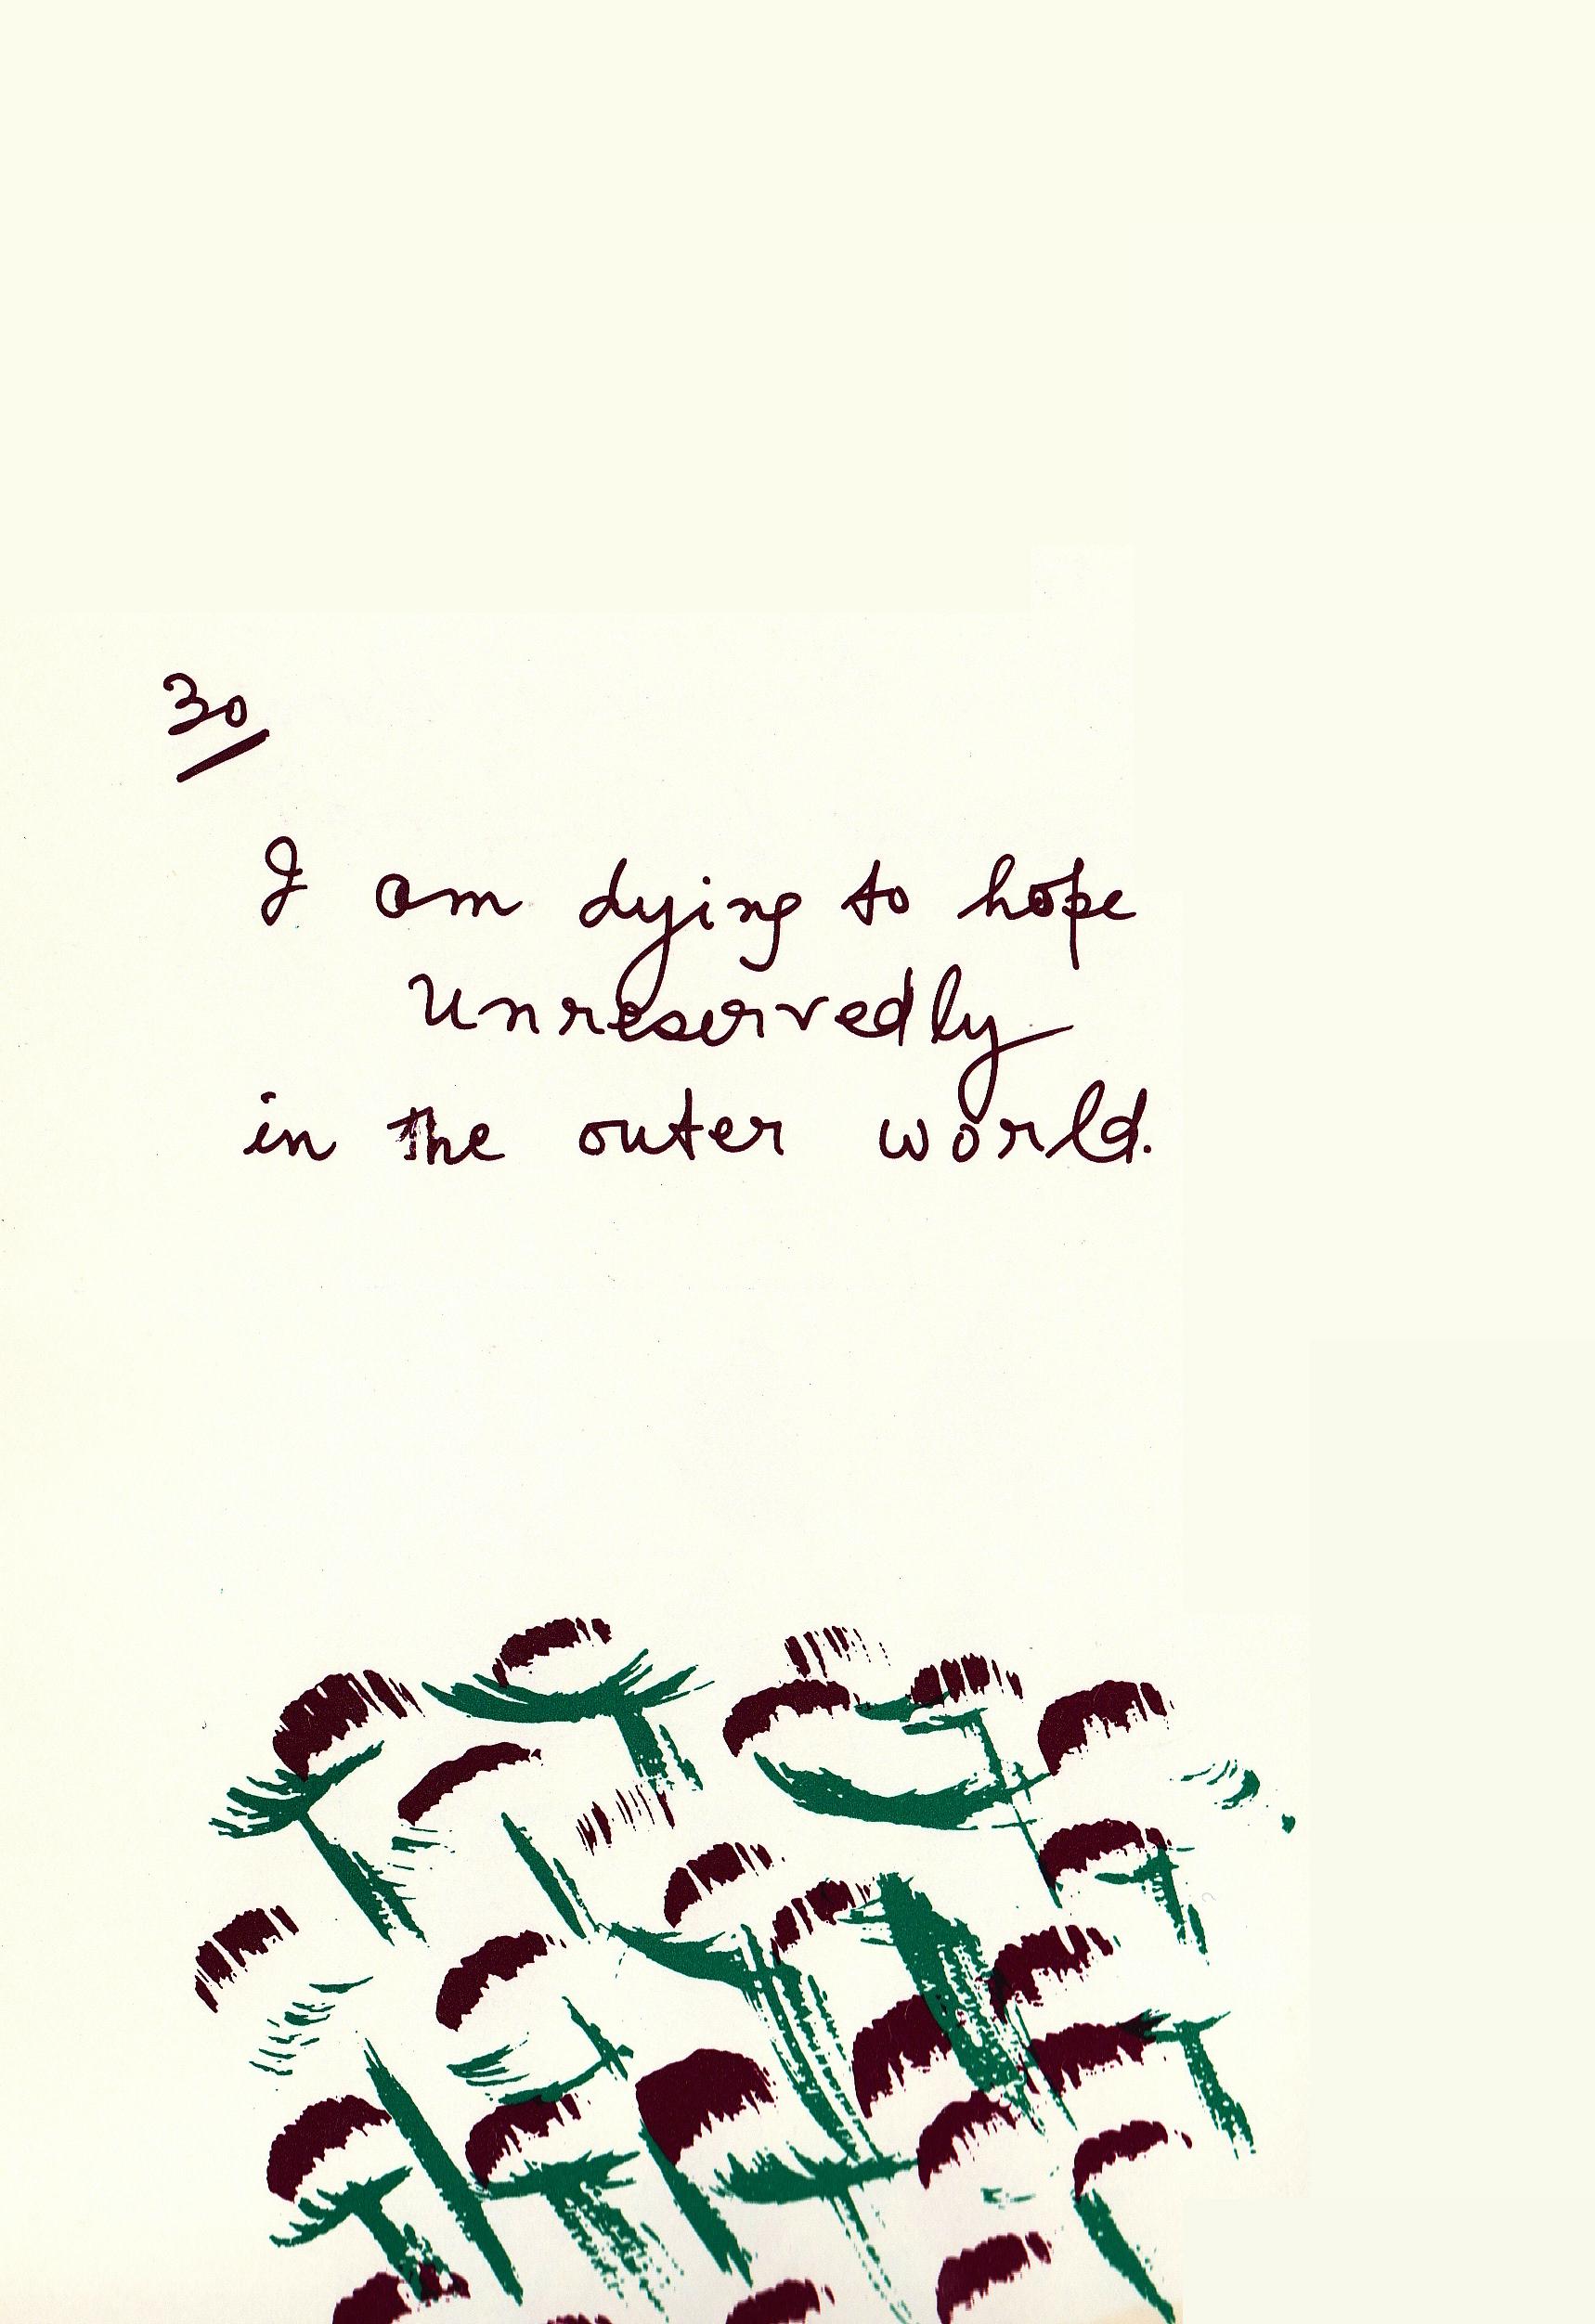 30
I am dying to hope
Unreservedly
in the outer world.